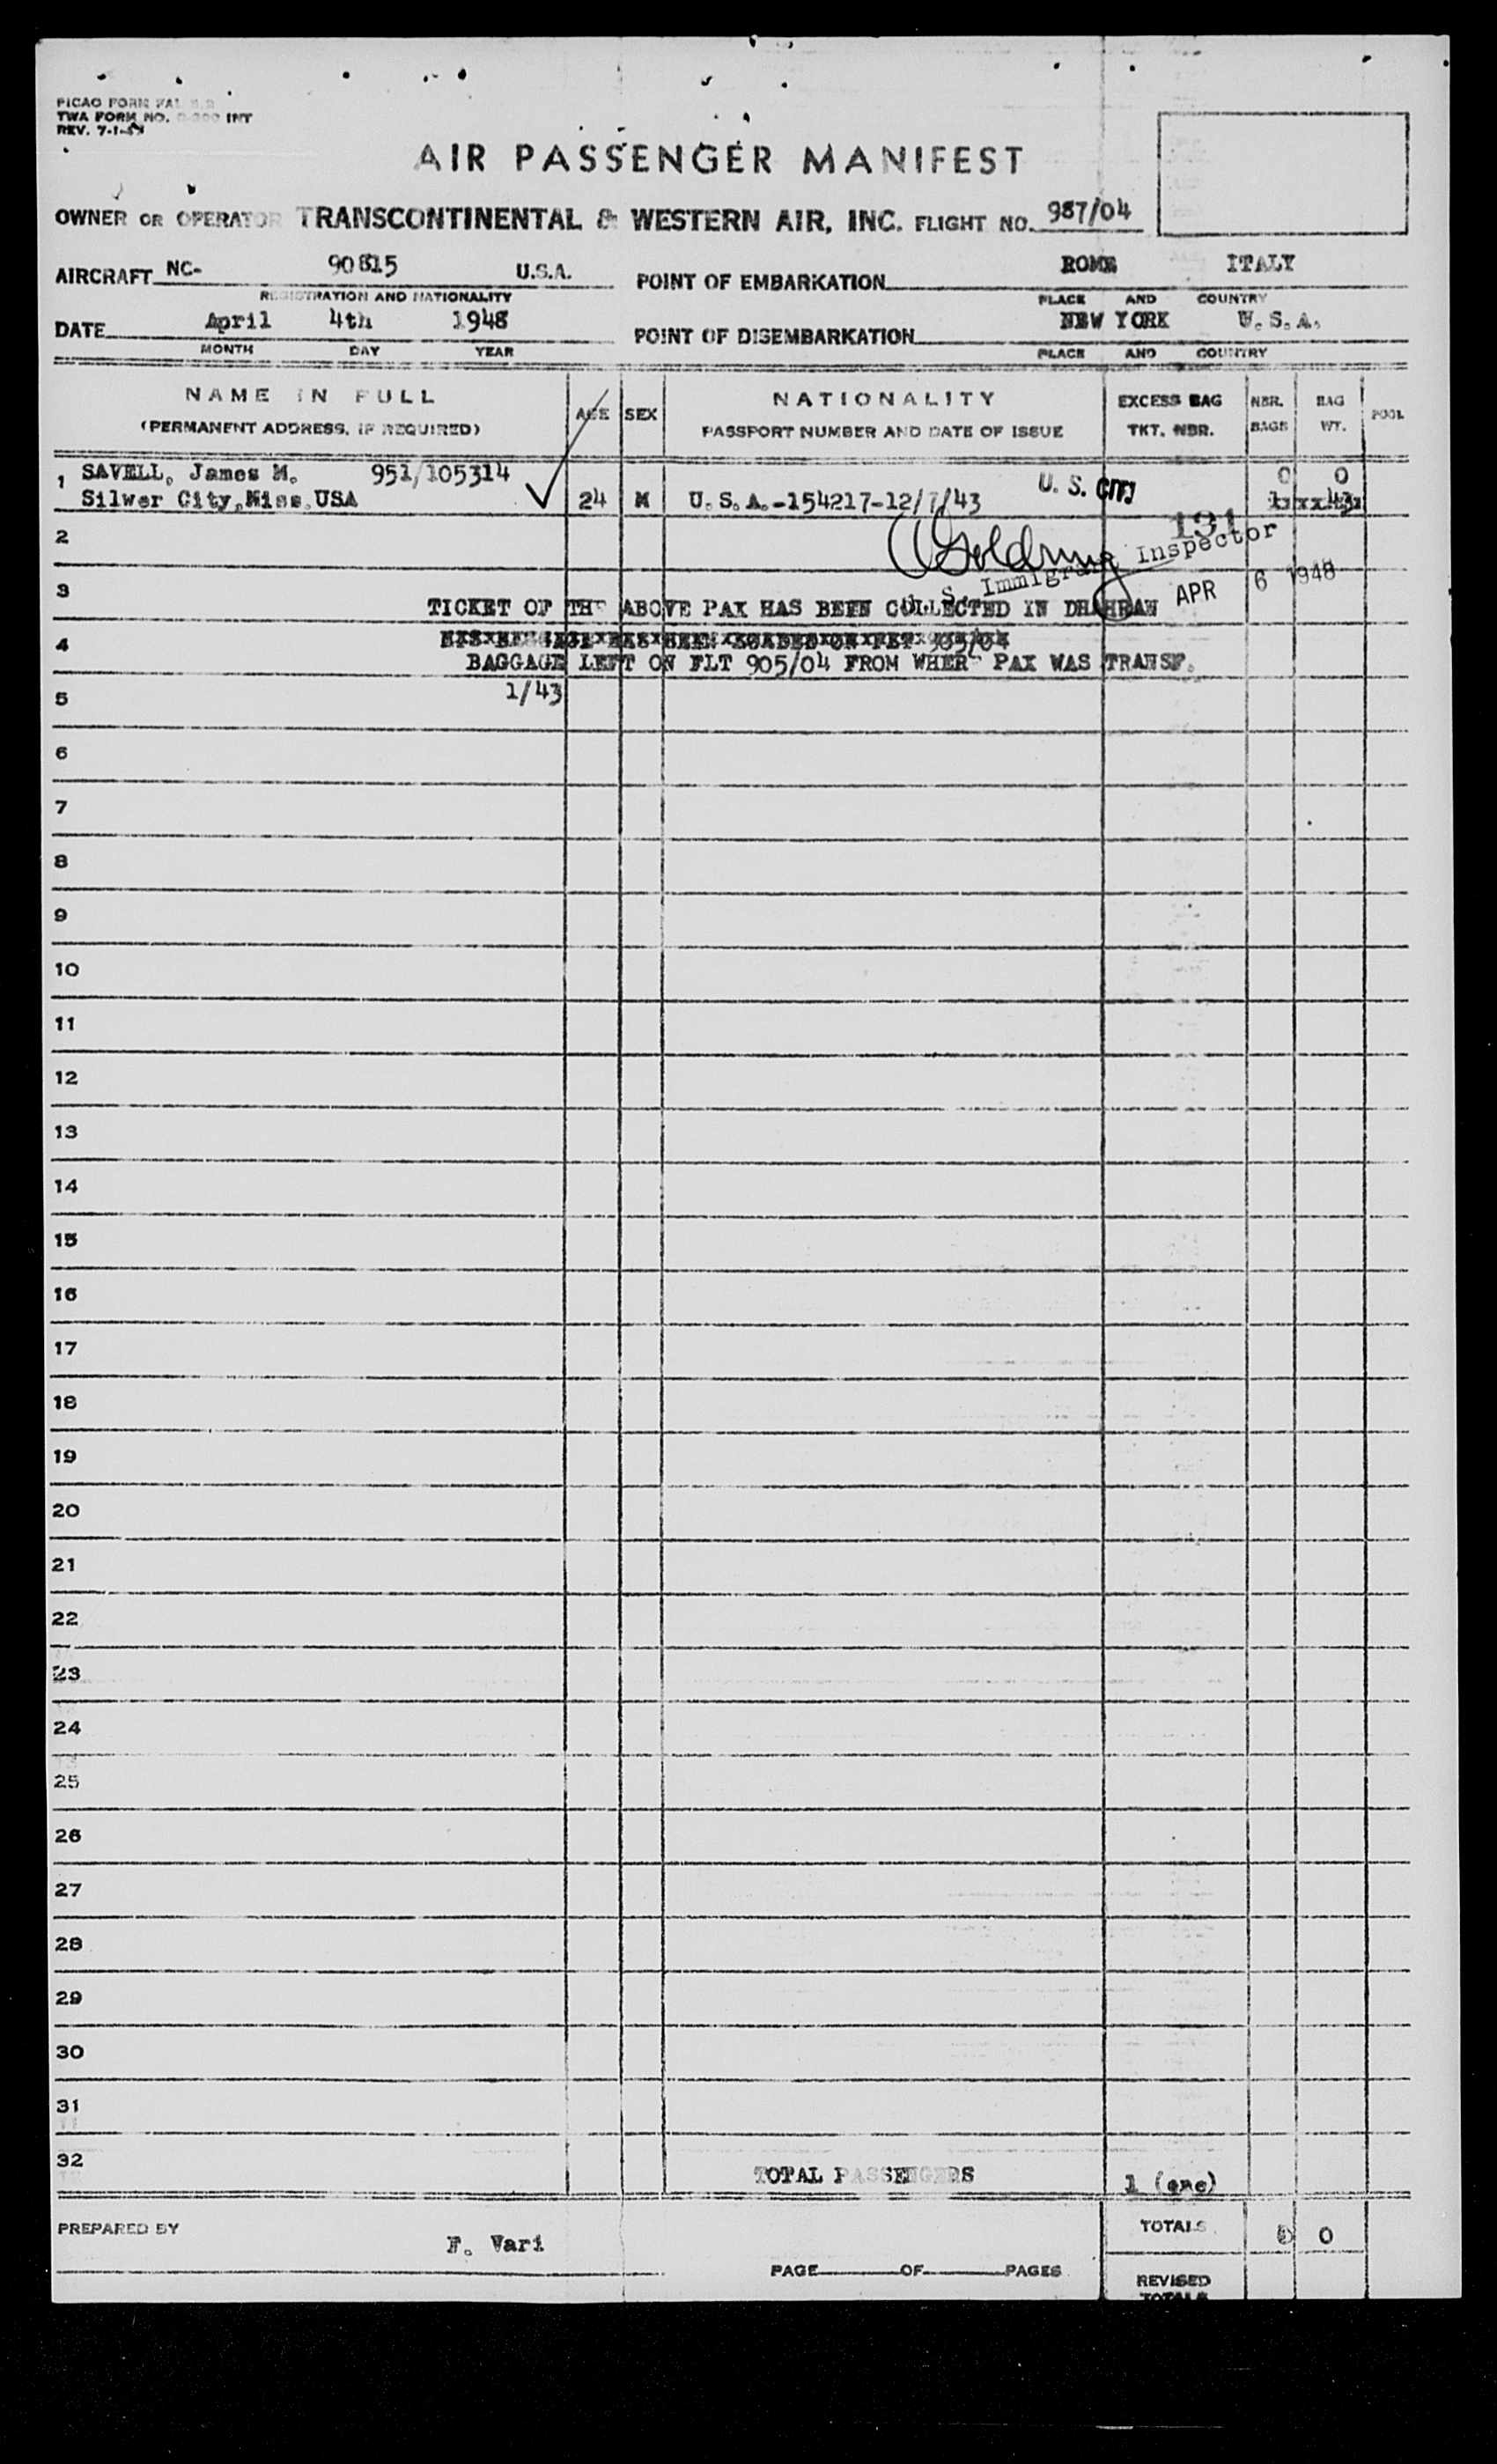 PICAO FORM FAL
TWA FORM NO. INT
REV. 7-1-
AIR PASSENGER MANIFEST
OWNER OR OPERATOR TRANSCONTINENTAL & WESTERN AIR, INC. FLIGHT NO. 987/04
AIRCRAFT NC- 90815 U.S.A. POINT OF EMBARKATION ROME ITALY
REGISTRATION AND NATIONALITY PLACE AND COUNTRY
DATE April 4th 1948 POINT OF DISEMBARKATION NEW YORK U.S.A.
MONTH DAY YEAR PLACE AND COUNTRY
NAME IN FULL AGE SEX NATIONALITY EXCESS BAG NBR. BAG POOL
(PERMANENT ADDRESS, IF REQUIRED) PASSPORT NUMBER AND DATE OF ISSUE TKT. NBR. BAGS WT.
1 SAVELL, James M. 951/105314 U. S. CIT 0 0
Silwer City,Miss.USA 24 M U.S.A.-154217-12/7/43
131
2 Goldring
U. S. Immigrant Inspector
APR 6 1948
3
TICKET OF THE ABOVE PAX HAS BEEN COLLECTED IN DHAHRAN
4 905/04
BAGGAGE LEFT ON FLT 905/04 FROM WHERE PAX WAS TRANSF.
5 1/43
6
7
8
9
10
11
12
13
14
15
16
17
18
19
20
21
22
23
24
25
26
27
28
29
30
31
32
TOTAL PASSENGERS 1 (one)
PREPARED BY F. Vari TOTALS 0 0
PAGE OF PAGES
REVISED
TOTALS